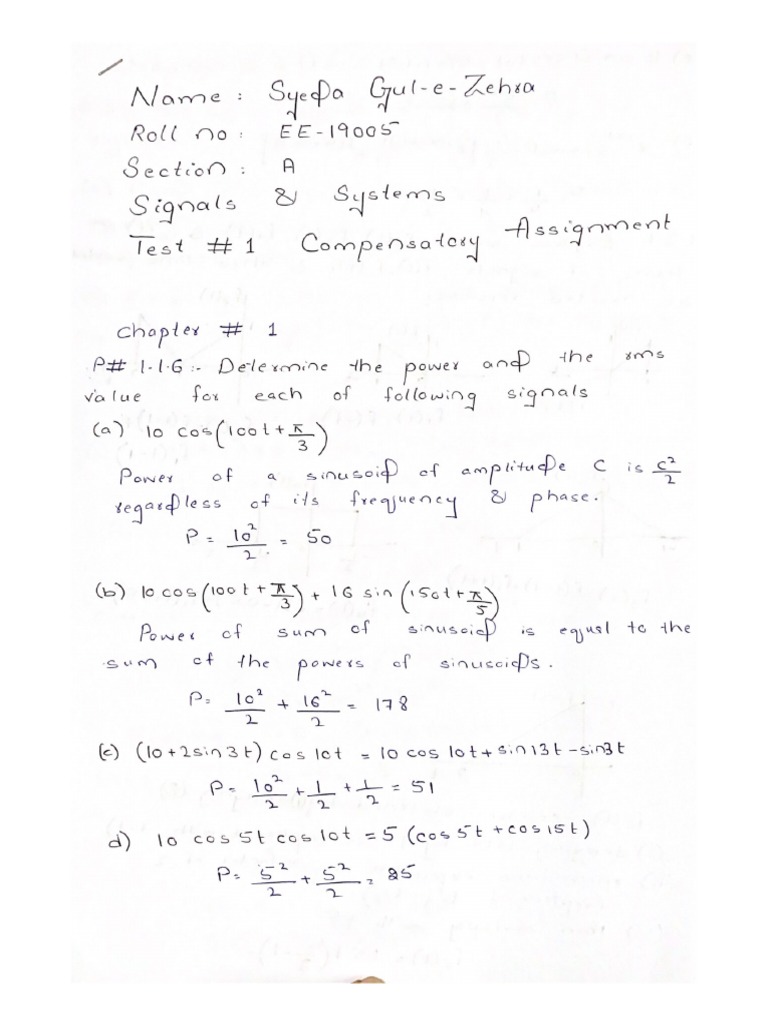 Name : Syeda Gul-e-Zehra
Roll no : EE-19005
Section : A
Signals & Systems
Test # 1 Compensatory Assignment
Chapter # 1
P# 1.1.6 :- Determine the power and the rms
value for each of following signals
(a) 10 cos(100t + π/3)
Power of a sinusoid of amplitude C is C²/2
regardless of its frequency & phase.
P = 10²/2 = 50
(b) 10 cos(100t + π/3) + 16 sin(150t + π/5)
Power of sum of sinusoid is equal to the
sum of the powers of sinusoids.
P = 10²/2 + 16²/2 = 178
(c) (10+2sin3t) cos 10t = 10 cos 10t + sin 13t - sin3t
P = 10²/2 + 1/2 + 1/2 = 51
d) 10 cos 5t cos 10t = 5 (cos 5t + cos 15t)
P = 5²/2 + 5²/2 = 25